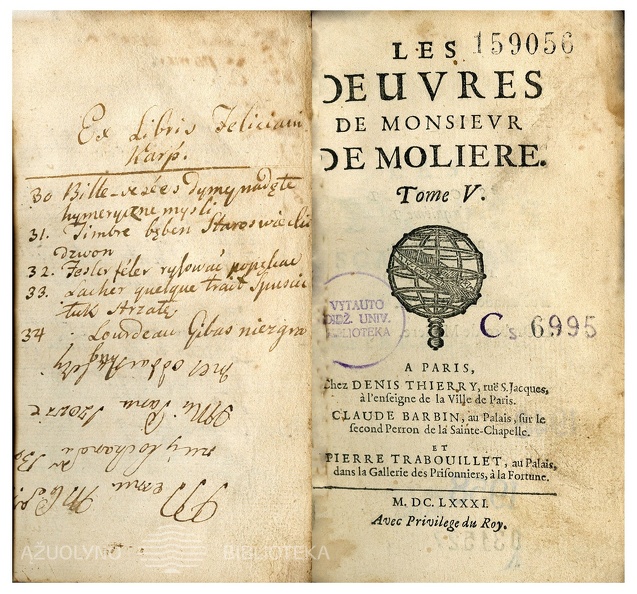 Ex Libris Feliciani
Karp.
30 Bille-vesées dymy nadęte
hymeryczne mysli
31. Timbre bęben Staroswiecki
dzwon
32. Fesler féler rysować popękac
33. Lacher quelque trait Spuscic
luk Strzałę
34 Lourdeau Gibas niezgra
AŽUOLYNO BIBLIOTEKA
LES 159056
OEUVRES
DE MONSIEVR
DE MOLIERE.
Tome V.
VYTAUTO
DIDŽ. UNIV.
BIBLIOTEKA
Cs. 6995
A PARIS,
Chez DENIS THIERRY, ruë S. Jacques,
à l'enseigne de la Ville de Paris.
CLAUDE BARBIN, au Palais, sur le
second Perron de la Sainte-Chapelle.
ET
PIERRE TRABOUILLET, au Palais,
dans la Gallerie des Prisonniers, à la Fortune.
M. DC. LXXXI.
Avec Privilege du Roy.